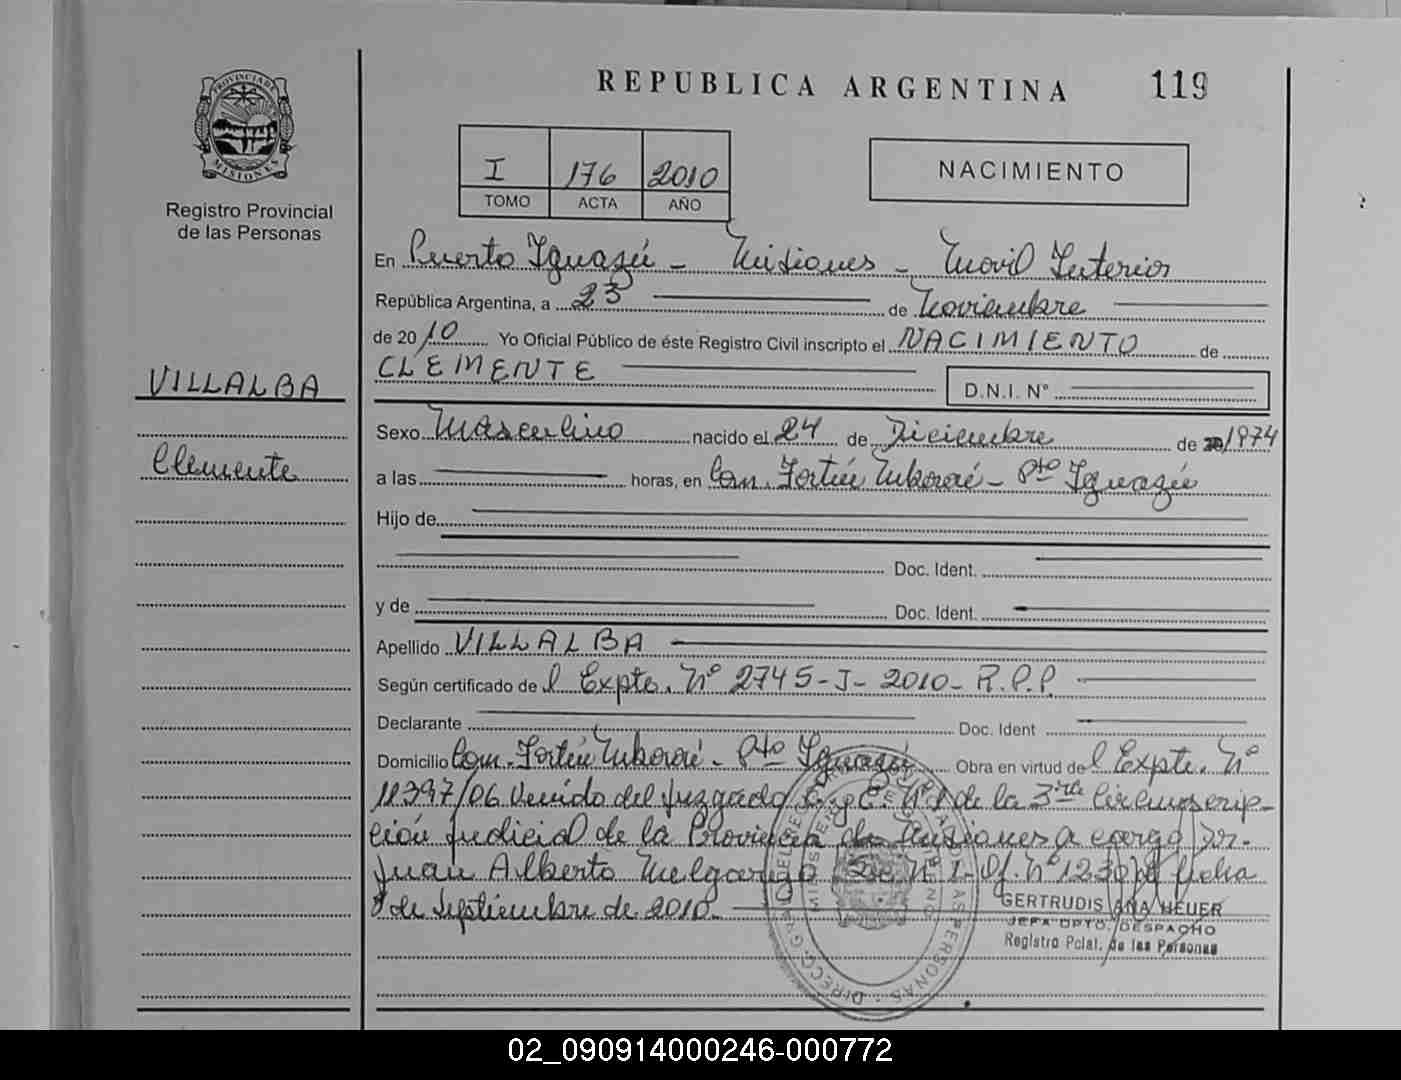 REPUBLICA ARGENTINA 119
PROVINCIA DE MISIONES
Registro Provincial
de las Personas
I 176 2010
TOMO ACTA AÑO
NACIMIENTO
En Puerto Iguazú - Misiones - Movil Interior
República Argentina, a 23 de Noviembre
de 2010 Yo Oficial Público de éste Registro Civil inscripto el NACIMIENTO de
CLEMENTE D.N.I. Nº
VILLALBA
Clemente
Sexo Masculino nacido el 24 de Diciembre de 1974
a las horas, en Com. Fortín Mbororé - Pto Iguazú
Hijo de
Doc. Ident.
y de Doc. Ident.
Apellido VILLALBA
Según certificado de l Expte. Nº 2745-J-2010- R.P.P.
Declarante Doc. Ident
Domicilio Com. Fortín Mbororé - Pto Iguazú Obra en virtud de l Expte. Nº
11397/06 Venido del Juzgado Nº 1 de la 3ra Circunscrip-
ción Judicial de la Provincia de Misiones a cargo Dr.
Juan Alberto Melgarejo Sec Nº 1- Of. Nº fecha
de Septiembre de 2010
GERTRUDIS ANA HEUER
JEFA DPTO. DESPACHO
Registro Pcial. de las Personas
02_090914000246-000772